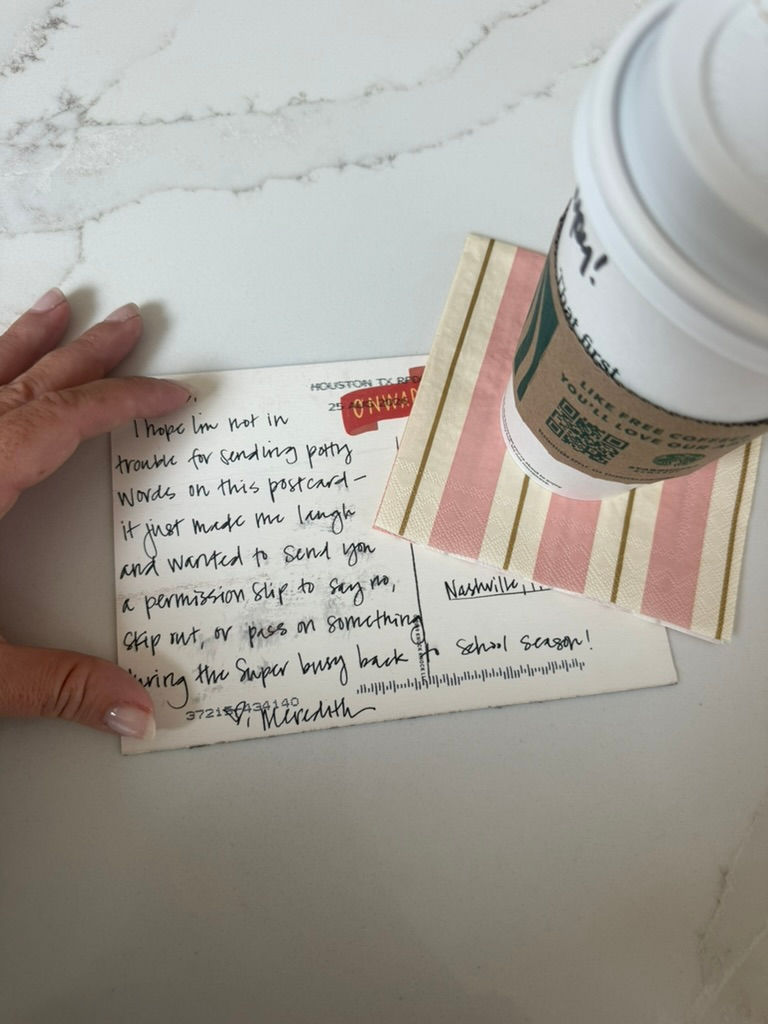 HOUSTON TX
25
ONWA
I hope I'm not in
trouble for sending potty
words on this postcard—
it just made me laugh
and wanted to send you
a permission slip to say no,
skip out, or pass on something
during the super busy back to school season!
Meredith
Nashville,
37215 434140
That first
LIKE FREE COFFEE?
YOU'LL LOVE OUR